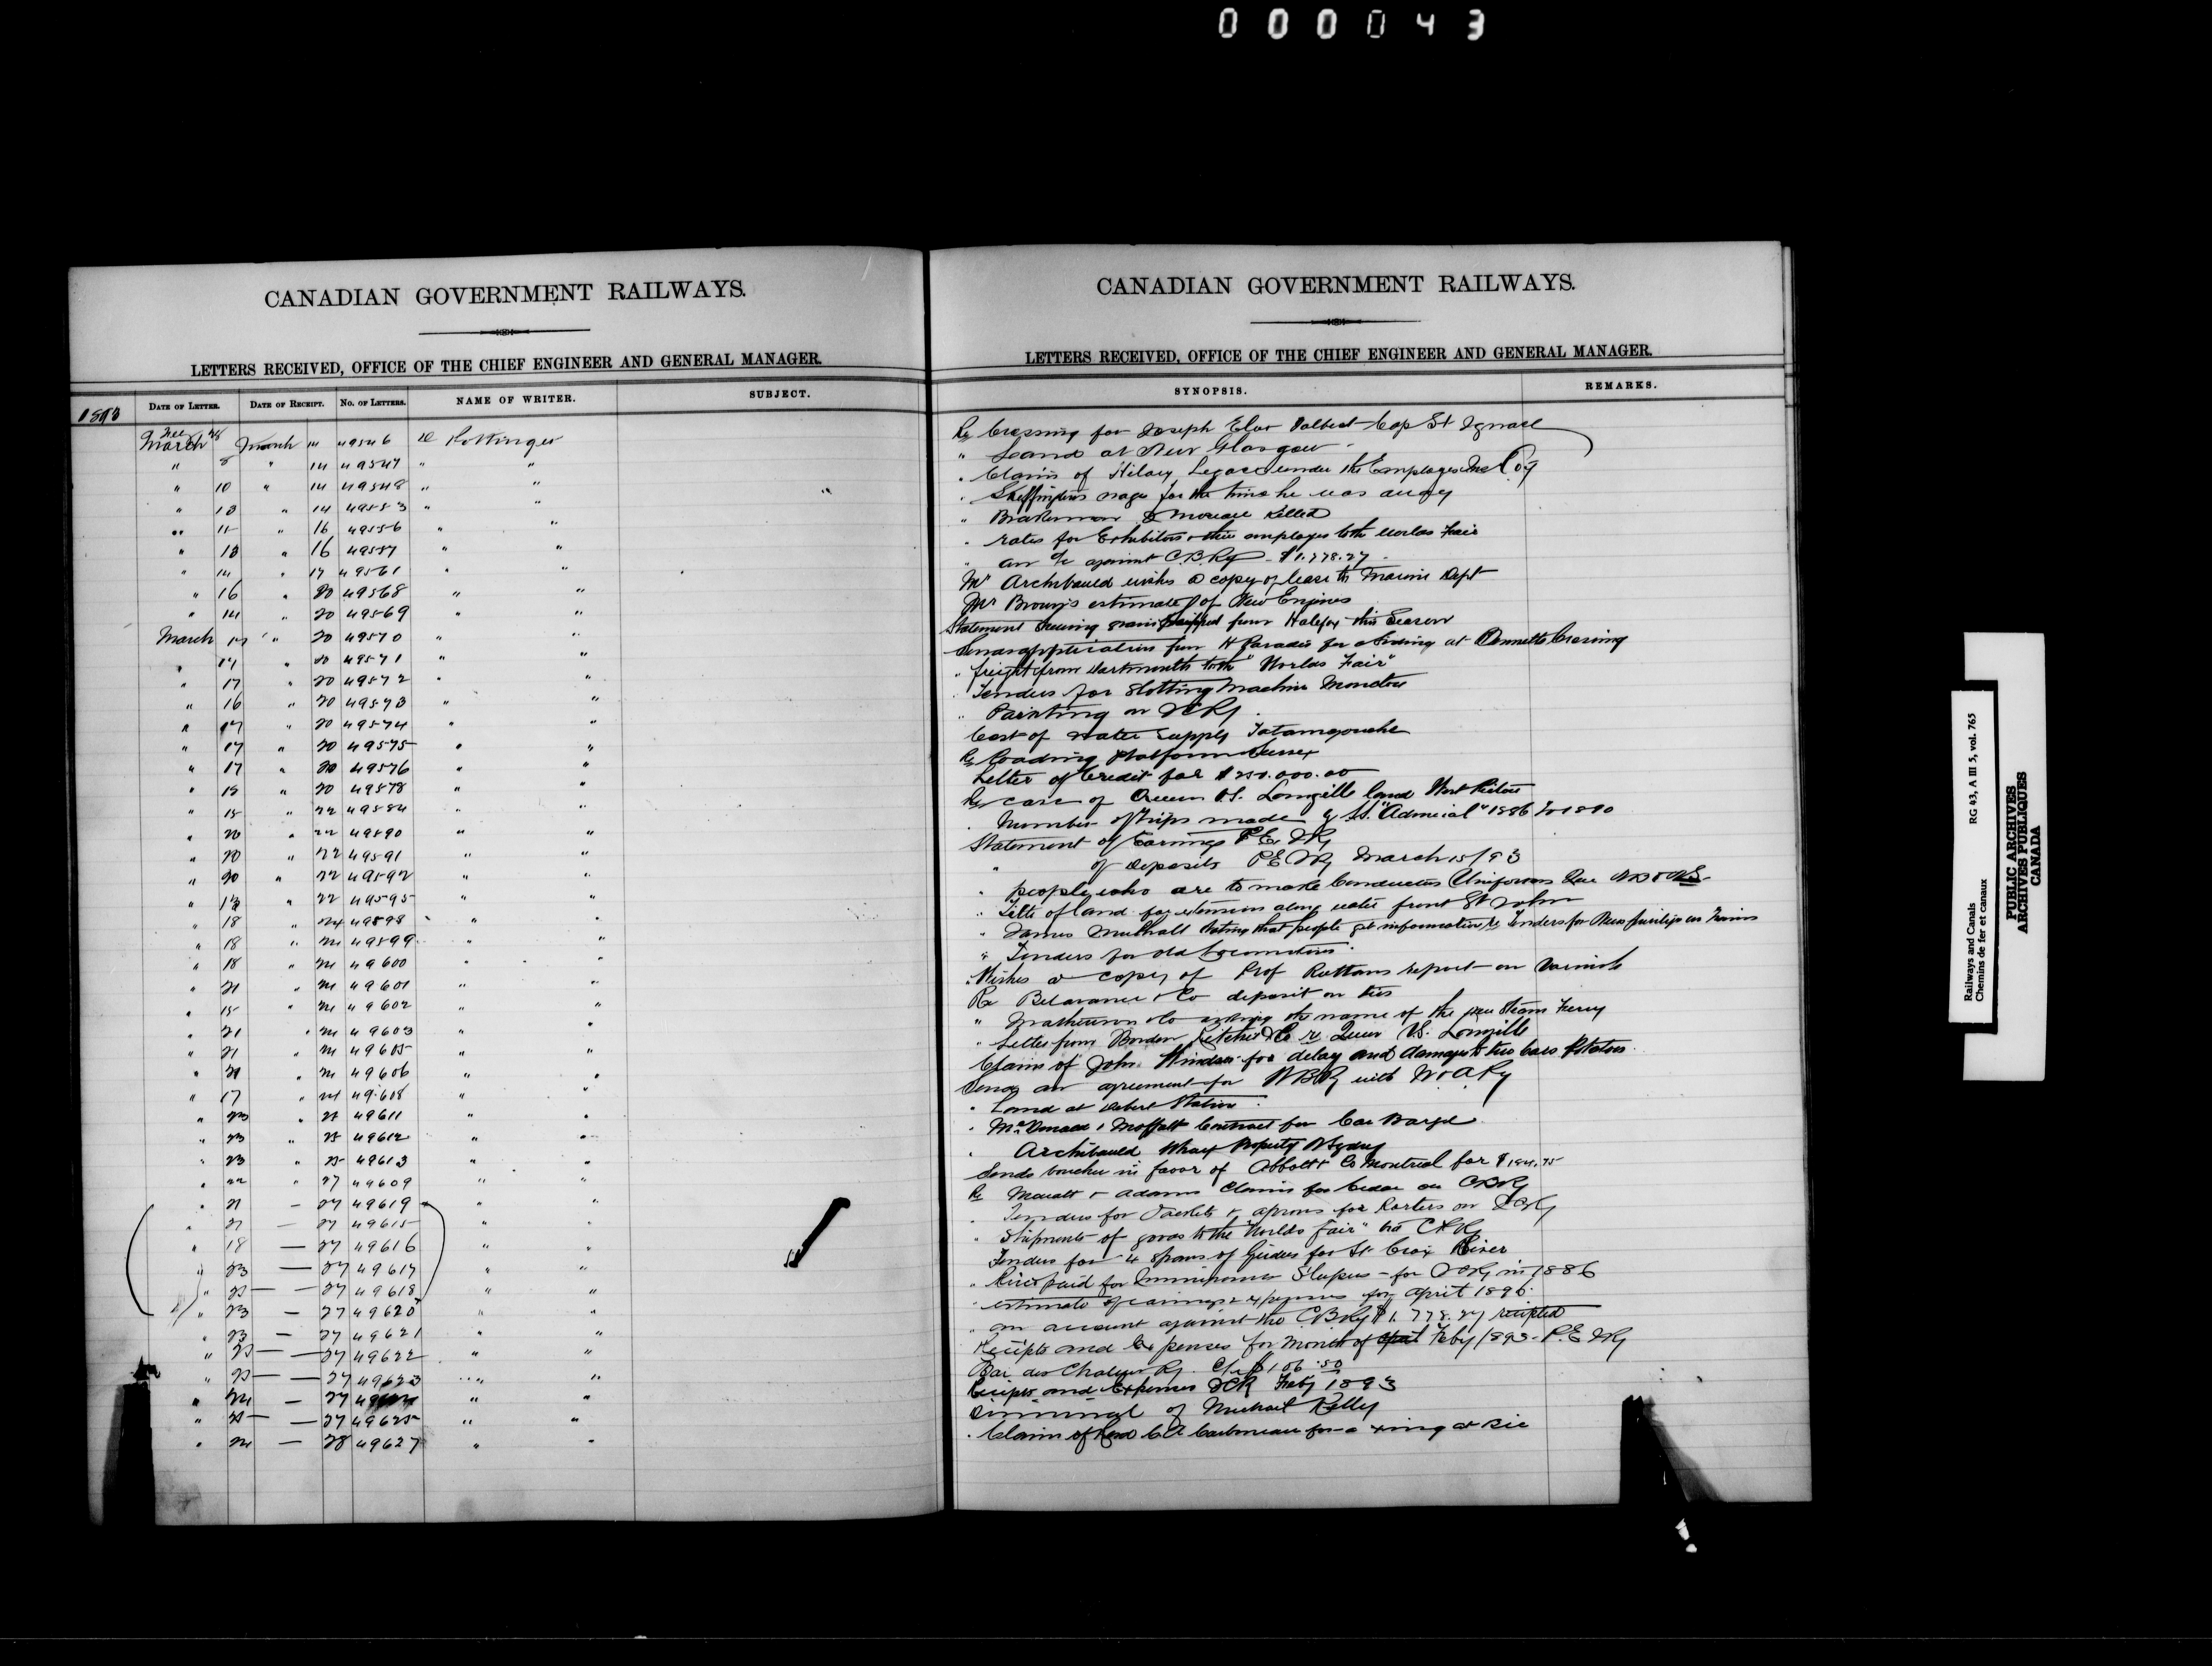 000043
CANADIAN GOVERNMENT RAILWAYS.
LETTERS RECEIVED, OFFICE OF THE CHIEF ENGINEER AND GENERAL MANAGER.
1893 DATE OF LETTER. DATE OF RECEIPT. NO. OF LETTERS. NAME OF WRITER. SUBJECT.
March March 14 49546 D Pottinger
" 8 " 14 49547 " "
" 10 " 14 49548 " "
" 13 " 14 49553 " "
" 15 " 16 49556 " "
" 13 " 16 49557 " "
" 14 " 17 49561 " "
" 16 " 20 49568 " "
" 14 " 20 49569 " "
March 17 " 20 49570 " "
" 17 " 20 49571 " "
" 17 " 20 49572 " "
" 16 " 20 49573 " "
" 17 " 20 49574 " "
" 17 " 20 49575 " "
" 17 " 20 49576 " "
" 18 " 20 49578 " "
" 15 " 22 49584 " "
" 20 " 22 49590 " "
" 20 " 22 49591 " "
" 20 " 22 49592 " "
" " 22 49595 " "
" 18 " 24 49598 " "
" 18 " 24 49599 " "
" 18 " 24 49600 " "
" 21 " 24 49601 " "
" 15 " 24 49602 " "
" 21 " 24 49603 " "
" 21 " 24 49605 " "
" 21 " 24 49606 " "
" 17 " 49608 " "
" 23 " 25 49611 " "
" 23 " 25 49612 " "
" 23 " 25 49613 " "
" 22 " 27 49609 " "
" 21 — 27 49619 " "
" 21 — 27 49615 " "
" 18 — 27 49616 " "
" 23 — 27 49617 " "
" 23 — 27 49618 " "
" 23 — 27 49620 " "
" 23 — 27 49621 " "
" 23 — 27 49622 " "
" 23 — 27 49623 " "
" 24 — 27 " "
" 25 — 27 49625 " "
" 24 — 28 49627 " "
CANADIAN GOVERNMENT RAILWAYS.
LETTERS RECEIVED, OFFICE OF THE CHIEF ENGINEER AND GENERAL MANAGER.
SYNOPSIS. REMARKS.
Re Crossing for Joseph Talbot Cap St Ignace
" Land at New Glasgow
" Claim of Hilary Legace under the Employees
" Skeffington wages for the time he was away
" Brakeman Moreau Killed
" rates for Exhibitors & their employes to the Worlds Fair
" an a/c against C.B.Ry $1.778.27
Mr Archibauld wishes a copy of lease to Marine Dept
Mr Brown's estimate of New Engines
Statement shewing grain shipped from Halifax this Season
Sends application from H Paradis for a Siding at Crossing
" freight from Dartmouth to the "Worlds Fair"
" Tenders for Slotting Machine Moncton
" Painting on ICRy
Cost of water supply Tatamagouche
Re Loading Platform Sussex
Letter of Credit for $250.000.00
Re case of Queen VS. Longille land West Pictou
" Number of trips made by St. "Admiral" 1886 to 1890
Statement of Earnings P.E.I.Ry
" of Deposits P.E.I.Ry March 15/93
" people who are to make Conductors Uniforms
" Title of land for extension along water front St John
" James stating that people get information re Tenders for News privileges on Trains
" Tenders for old Locomotives
" Wishes a copy of Prof Ruttans report on Varnish
Re Co deposit on ties
" Matheson & Co asking the name of the new Steam Ferry
" Letter from Borden Ritchie & Co re Queen VS. Longille
Claim of John for delay and damage to two cars Potatoes
Sends an agreement for with W & A Ry
" Land at Debert Station
" McDonald & Moffatt Contract for Car Barge
" Archibauld Wharf Property N Sydney
Sends voucher in favor of Abbott & Co Montreal for
Re & Adams Claim for Cedar on CBRy
" Tenders for Jackets & aprons for Porters on ICRy
" Shipments of goods to the "Worlds Fair" via CPRy
Tenders for 4 Spans of Girders for St Croix River
" Price paid for Sleepers - for ICRy in 1886
" estimate of earnings & expenses for April 1893
" an account against the CBRy $1.778.27 receipted
Receipts and Expenses for Month of Feby 1893 - P.E.I.Ry
Bai des Chaleurs Ry. C/e $106.50
Receipts and Expenses ICR Feby 1893
Dismissal of Michael Kelly
" Claim of for a xing at Bic
Railways and Canals RG 43, A III 5, vol. 765
Chemins de fer et canaux
PUBLIC ARCHIVES
ARCHIVES PUBLIQUES
CANADA